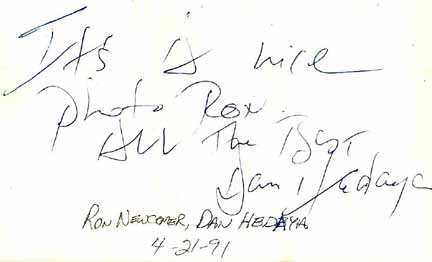 It's A nice
photo Ron.
All The Best
Dan Hedaya
RON NEWCOMER, DAN HEDAYA
4-21-91